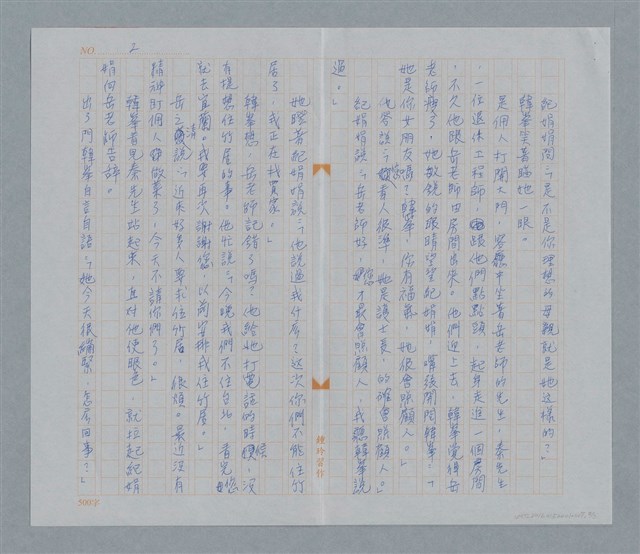 NO. 2
紀娟娟問：「是不是你理想的母親就是她这樣的？」
韓畢笑着瞄她一眼。
是佣人打開大門，客廳中坐着岳老師的先生，秦先生
，一位退休工程師，跟他們點點頭，起身走進一個房間
，不久他跟岳老師由房間出來。他們迎上去，韓畢覺得岳
老師瘦了，她敏銳的眼睛望望紀娟娟，嘩後問問韓畢：「
她是你女朋友嗎？韓畢，你有福氣，她很會照顧人。」
也答說：「您看人很準，她是護士長，的確會照顧人。」
紀娟娟說：「岳老師好，您才最會照顧人，我聽韓畢說
過。」
她瞪着紀娟娟說：「他說過我什麼？这次你們不能住竹
居了，我正在找買家。」
韓畢想，岳老師記錯了嗎？他給她打電話的時候，沒
有提想住竹居的事。他忙說：「今晚我們不住台北，看完您
就去宜蘭。我畢再次謝謝您，以前安排我住竹屋。」
岳之清說：「近來好多人要求住竹居，很煩。最近沒有
精神，佣人辭做菜了，今天不請你們了。」
韓畢看見秦先生站起來，直对他使眼色，就拉起紀娟
娟向岳老師告辞。
出了門韓畢自言自語：「她今天很繃緊，怎麼回事？」
鍾玲習作
500字